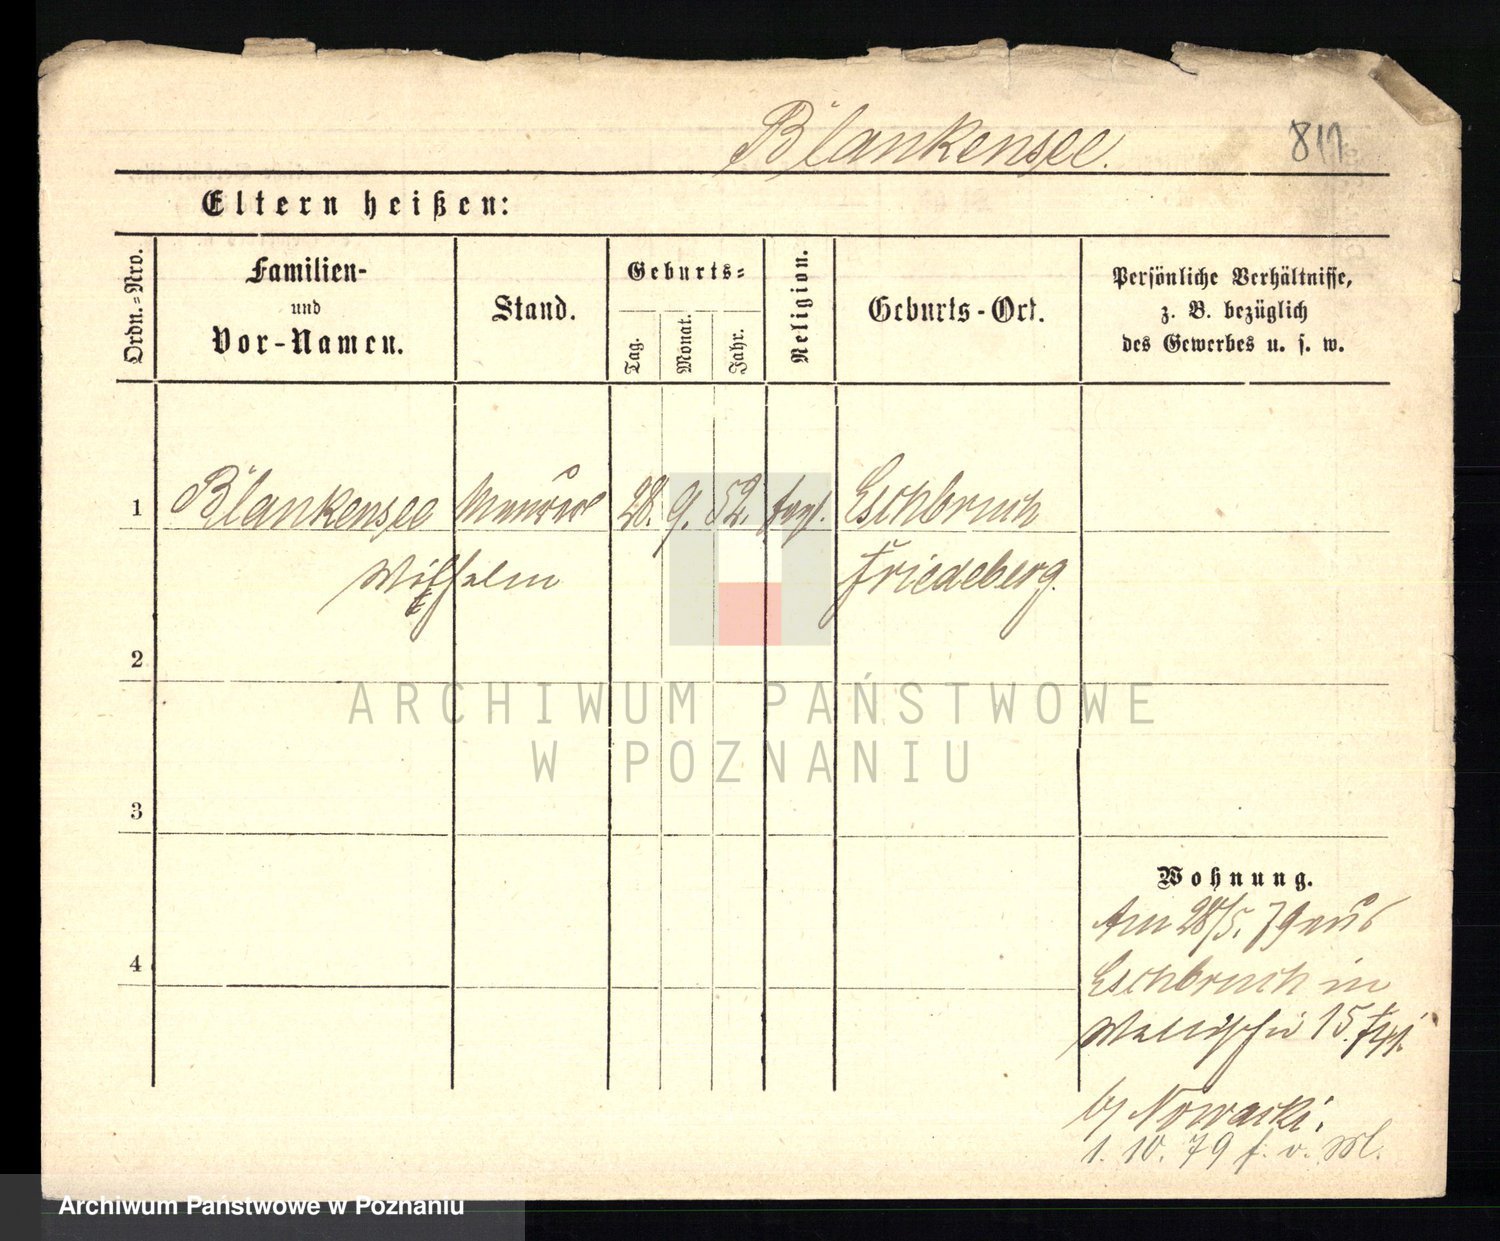 Blankensee. 817
Eltern heißen:
Ordn.=Nro.
Familien-
und
Vor-Namen.
Stand.
Geburts=
Tag.
Monat.
Jahr.
Religion.
Geburts-Ort.
Persönliche Verhältnisse,
z. B. bezüglich
des Gewerbes u. s. w.
1 Blankensee Maurer 28. 9. 52. Eschbruch
Wilhelm Friedeberg.
2
ARCHIWUM PAŃSTWOWE
W POZNANIU
3
Wohnung.
Am 28/5. 79 aus
4 Eschbruch in
Wallischei 15.
b/ Nowacki.
1. 10. 79 f. v. M.
Archiwum Państwowe w Poznaniu